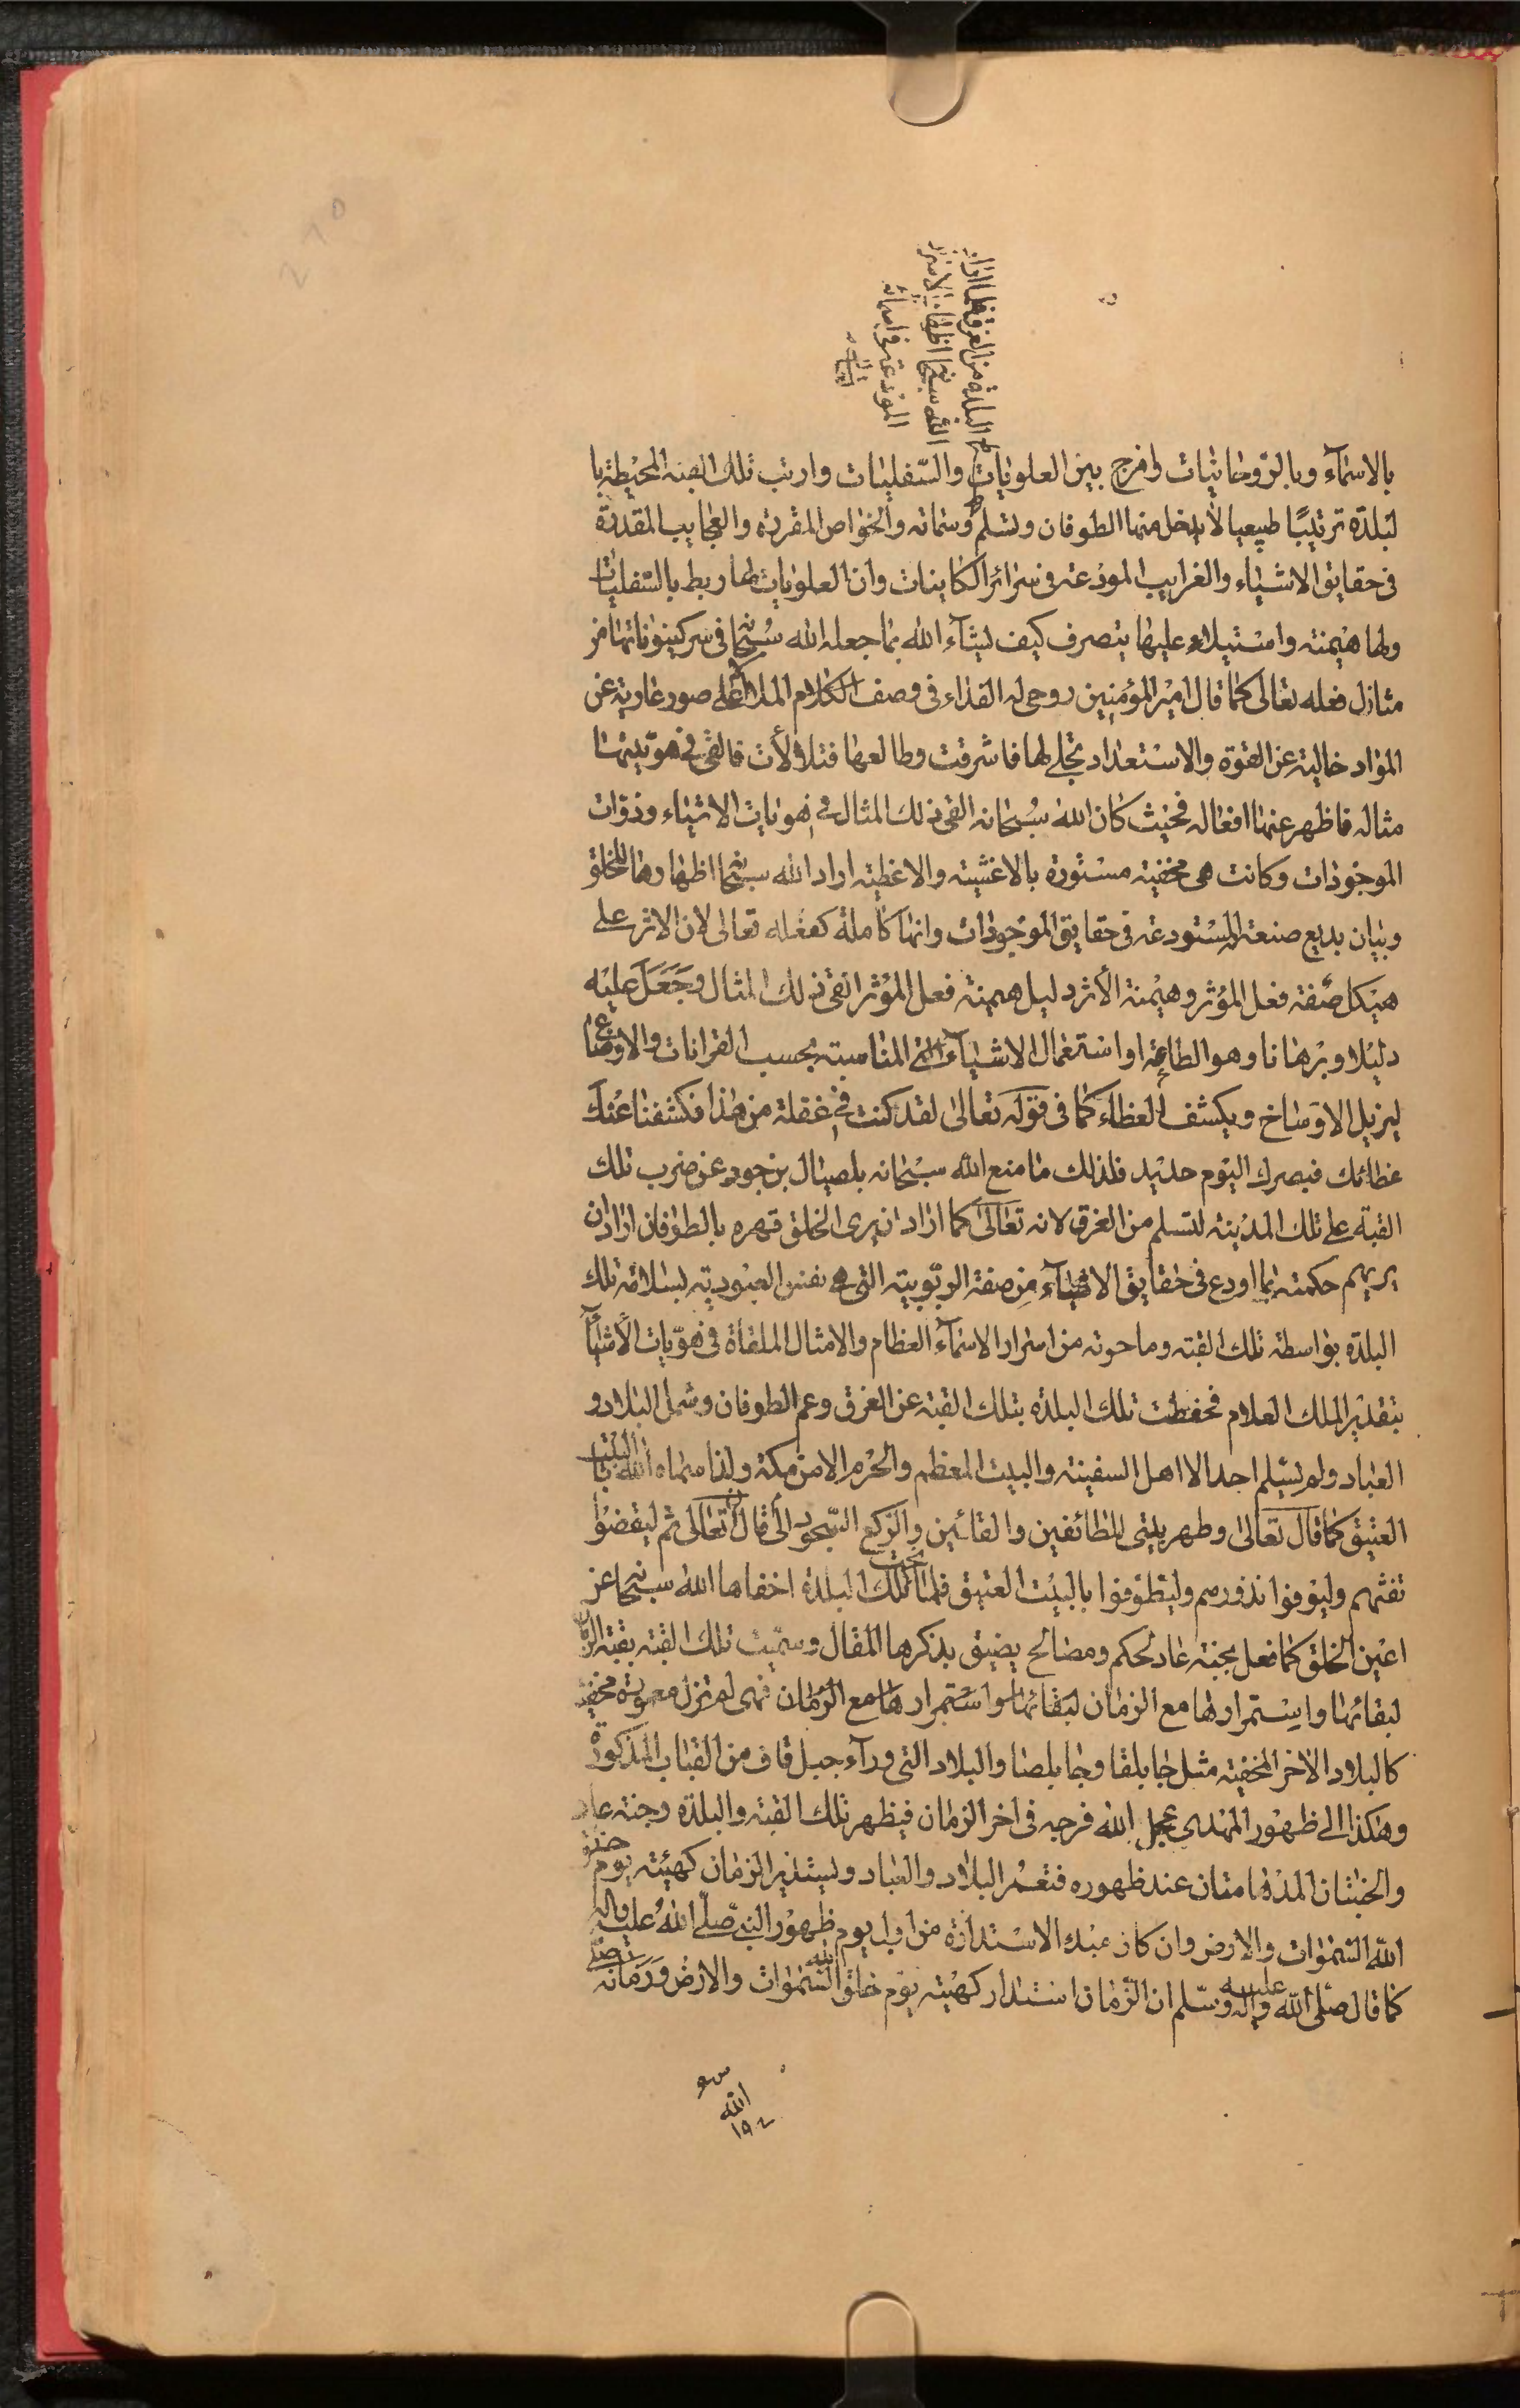 البلدة من الغرق فلما اراد
الله سبحانه اظهار الاسرار
المودعة في اسمائه
بالاسمآء وبالروحانيات وامزج بين العلويات والسفليات وارتب تلك القبة المحيطة با
لبلدة ترتيبًا طبيعيا لأيدخل منها الطوفان وتسلم وسماته والخواص المقررة والعجايب المقدرة
في حقايق الاشياء والغرايب المودعة في سرائر الكاينات وان العلويات لها ربط بالسفليات
ولها هيمنة واستيلاء عليها يتصرف كيف يشآء الله بما جعله الله سبحانه في سر كينوناتها من
مثال فعله تعالى كما قال امير المؤمنين روحي له الفداء في وصف الكلام الملا الاعلى صور عارية عن
المواد خالية عن القوة والاستعداد تجلى لها فاشرقت وطالعها فتلألأت فالقى في هويتها
مثاله فاظهر عنها افعاله فحيث كان الله سبحانه القى ذلك المثال في هويات الاشياء وذوات
الموجودات وكانت هي مخفية مستورة بالاغشية والاغطية اراد الله سبحانه اظهارها للخلق
وبيان بديع صنعة المستودعة في حقايق الموجودات وانها كاملة كفعله تعالى لان الاثر على
هيكل صفة فعل المؤثر وهيمنة الأثر دليل هيمنة فعل المؤثر القى ذلك المثال وجعل عليه
دليلا وبرهانا وهو الطاعة او استعمال الاشيآء المناسبة بحسب القرانات والاوضاع
ليزيل الاوساخ ويكشف الغطاء كما في قوله تعالى لقد كنت في غفلة من هذا فكشفنا عنك
غطائك فبصرك اليوم حديد فلذلك ما منع الله سبحانه بلصيال بن جود عن ضرب تلك
القبة على تلك المدينة لتسلم من الغرق لانه تعالى كما اراد ان يرى الخلق قهره بالطوفان اراد ان
يريهم حكمته بما اودع في حقايق الاشيآء من صفة الربوبية التي هي نفس العبودية بسلامة تلك
البلدة بواسطة تلك القبة وما حوته من اسرار الاسمآء العظام والامثال الملقاة في هويات الأشيآء
بتقدير الملك العلام فحفظت تلك البلدة بتلك القبة عن الغرق وعم الطوفان وشمل البلاد و
العباد ولم يسلم احد الا اهل السفينة والبيت المعظم والحرم الامن مكة ولذا سماه الله بالبيت
العتيق كما قال تعالى وطهر بيتي للطائفين والقائمين والركع السجود الى ان قال تعالى ثم ليقضوا
تفثهم وليوفوا نذورهم وليطوفوا بالبيت العتيق فلما نجت تلك البلدة اخفاها الله سبحانه عن
اعين الخلق كما فعل بجنة عاد لحكم ومصالح يضيق بذكرها المقال وسميت تلك القبة بقبة الزمان
لبقائها واستمرارها مع الزمان لبقائها واستمرارها مع الزمان فهي لم تزل معمورة مخفية
كالبلاد الاخر المخفية مثل جابلقا وجابلصا والبلاد التي ورآء جبل قاف من القباب المذكورة
وهكذا الى ظهور المهدي عجل الله فرجه في اخر الزمان فيظهر تلك القبة والبلدة وجنة عاد
والجنتان المدهامتان عند ظهوره فتعمر البلاد والعباد ويستدير الزمان كهيئته يوم خلق
الله السموات والارض وان كان مبدء الاستدارة من اول يوم ظهور النبي صلى الله عليه واله
كما قال صلى الله عليه واله وسلم ان الزمان استدار كهيئته يوم خلق الله السموات والارض وزمانه صلى
الله